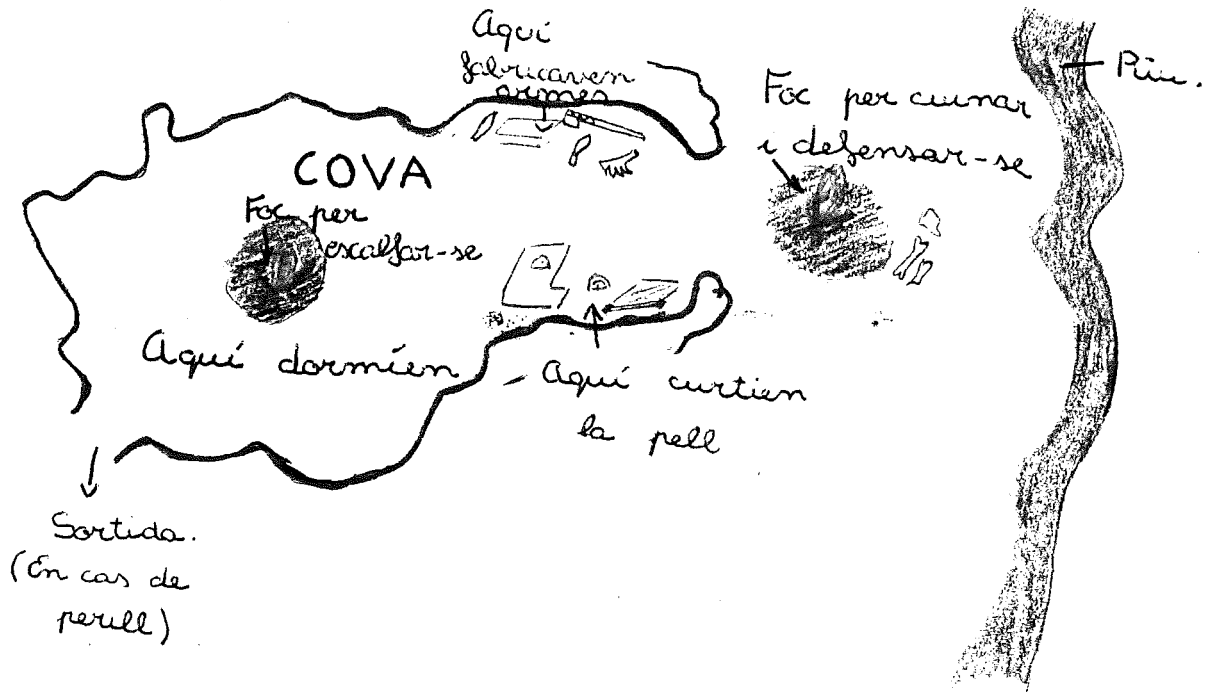 Aquí
fabricaven
armes
Riu.
Foc per cuinar
i defensar-se
COVA
Foc per
escalfar-se
Aquí dormíen
Aquí curtien
la pell
Sortida.
(En cas de
perill)